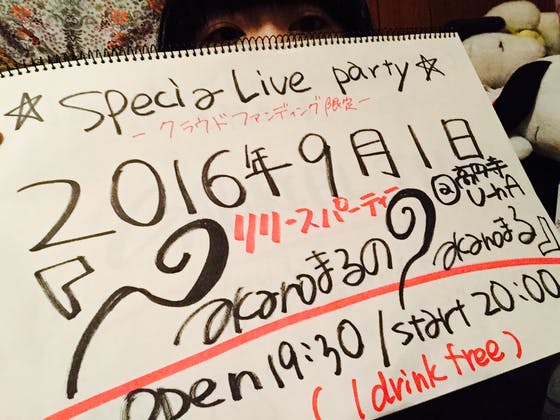 ☆ Specia Live party ☆
-クラウドファンディング限定-
2016年9月1日
リリースパーティー
@高円寺
U-hA
『akanoまるの akanoまる』
open 19:30 / start 20:00
(1drink free)